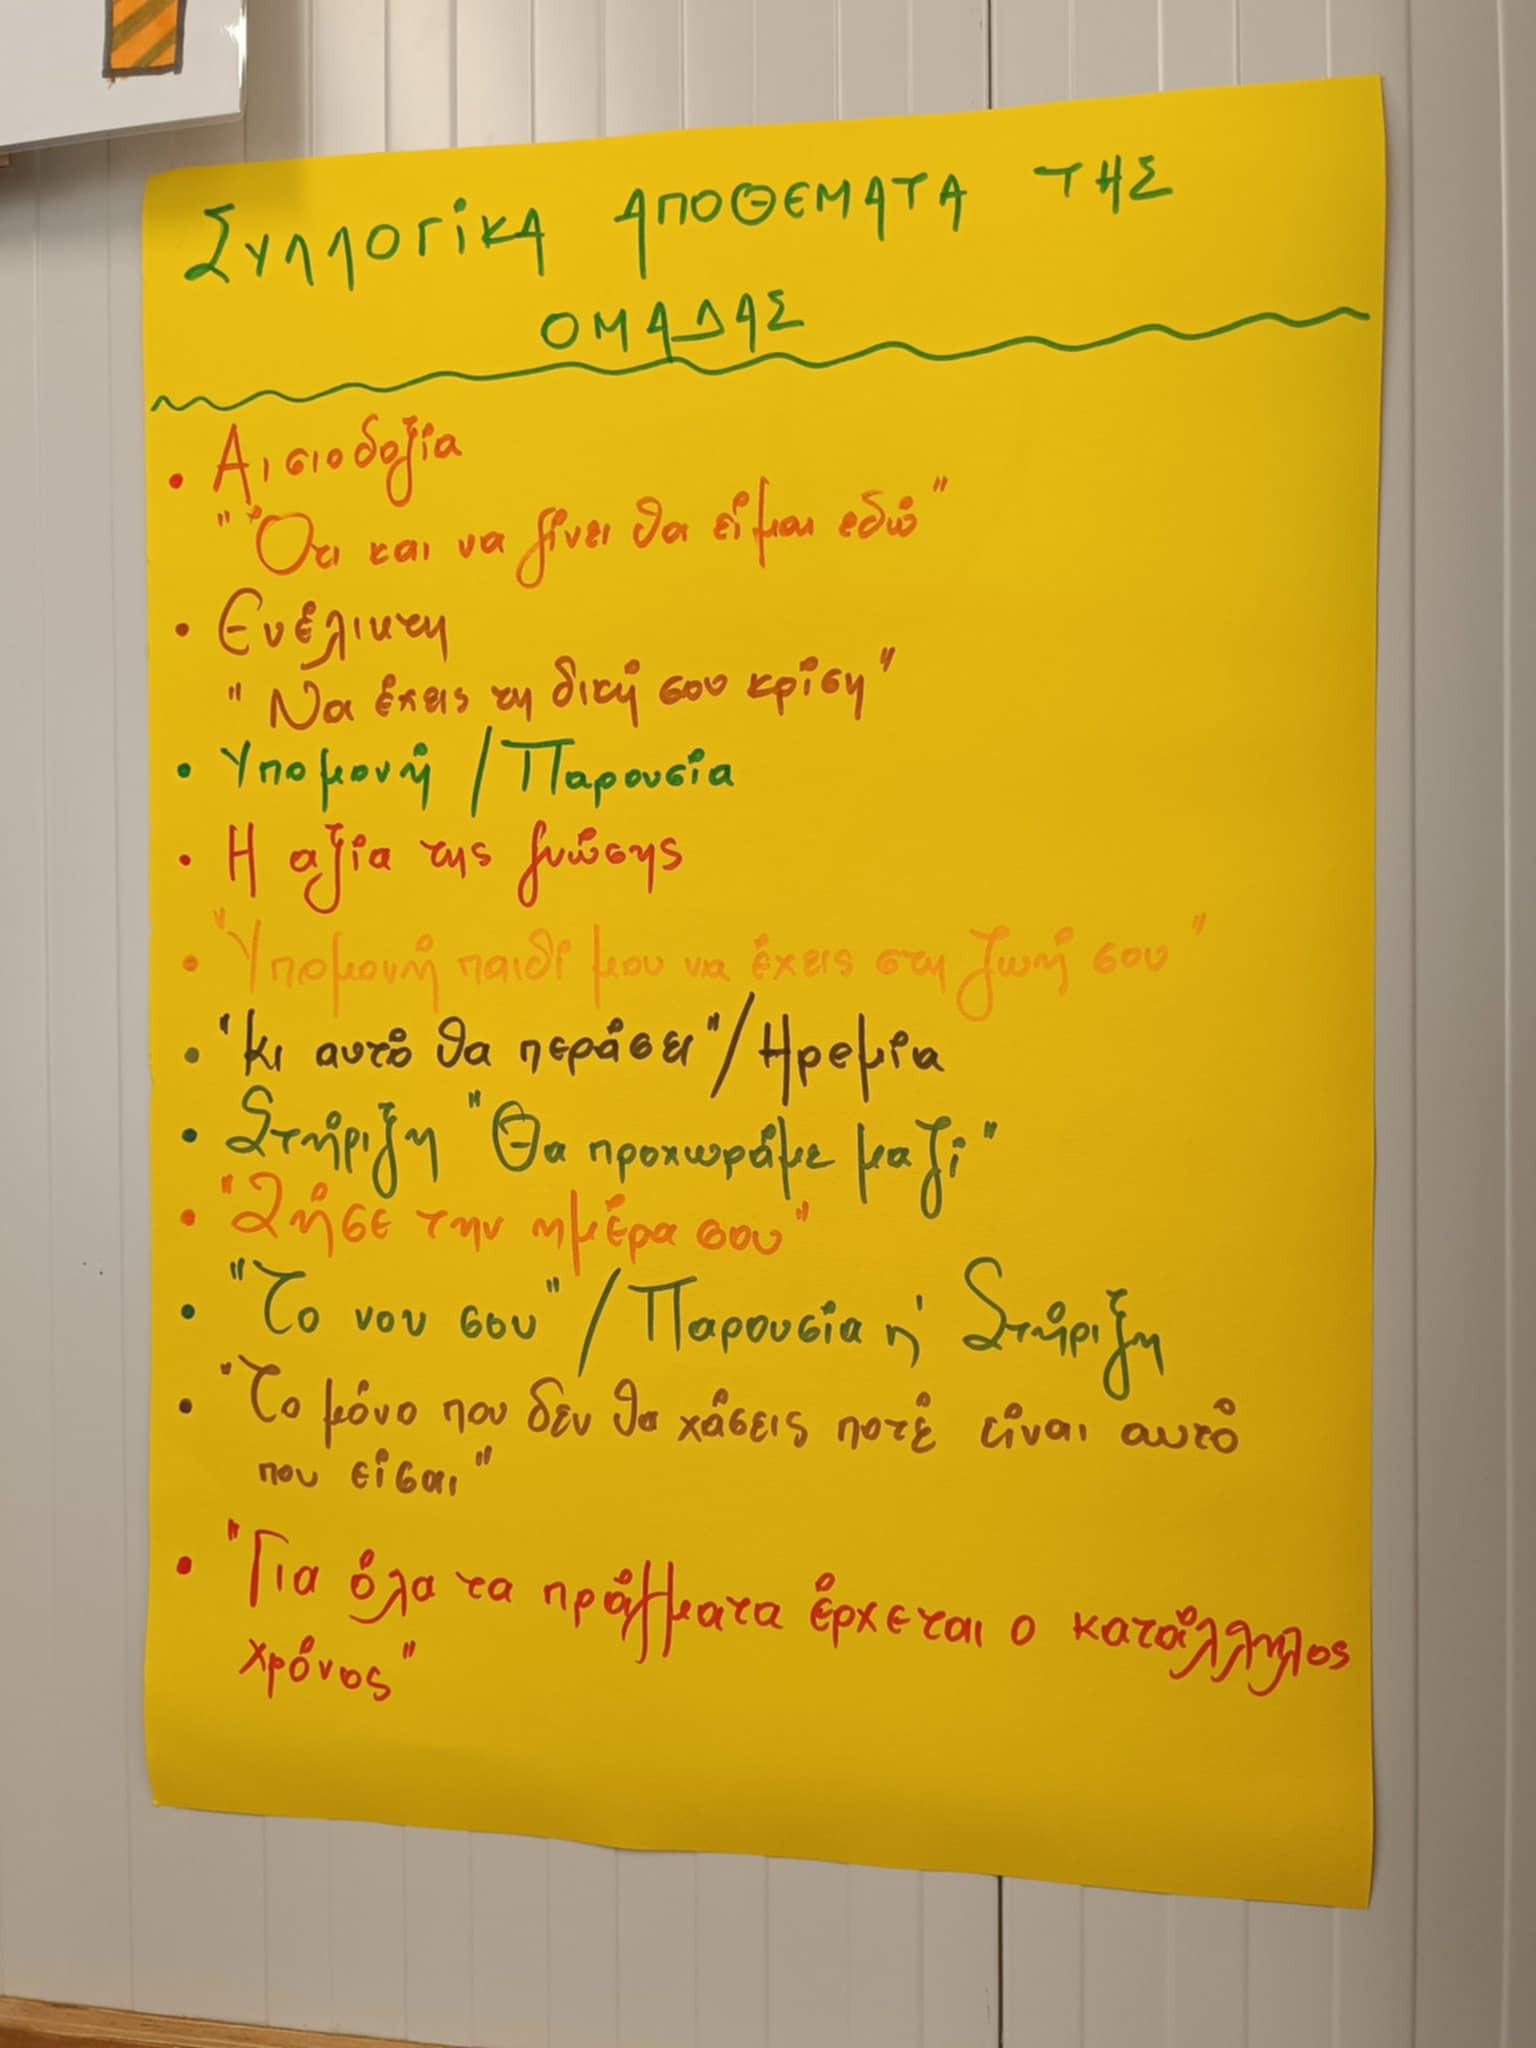 ΣΥΛΛΟΓΙΚΑ ΑΠΟΘΕΜΑΤΑ ΤΗΣ
ΟΜΑΔΑΣ
• Αισιοδοξία
"Ότι και να γίνει θα είμαι εδώ"
• Ευέλικτη
"Να έχεις τη δική σου κρίση"
• Υπομονή / Παρουσία
• Η αξία της γνώσης
• "Υπομονή παιδί μου να έχεις στη ζωή σου"
• "Κι αυτό θα περάσει" / Ηρεμία
• Στήριξη "Θα προχωράμε μαζί"
• "Ζήσε την ημέρα σου"
• "Το νου σου" / Παρουσία ή Στήριξη
• "Το μόνο που δεν θα χάσεις ποτέ είναι αυτό
που είσαι"
• "Για όλα τα πράγματα έρχεται ο κατάλληλος
χρόνος"